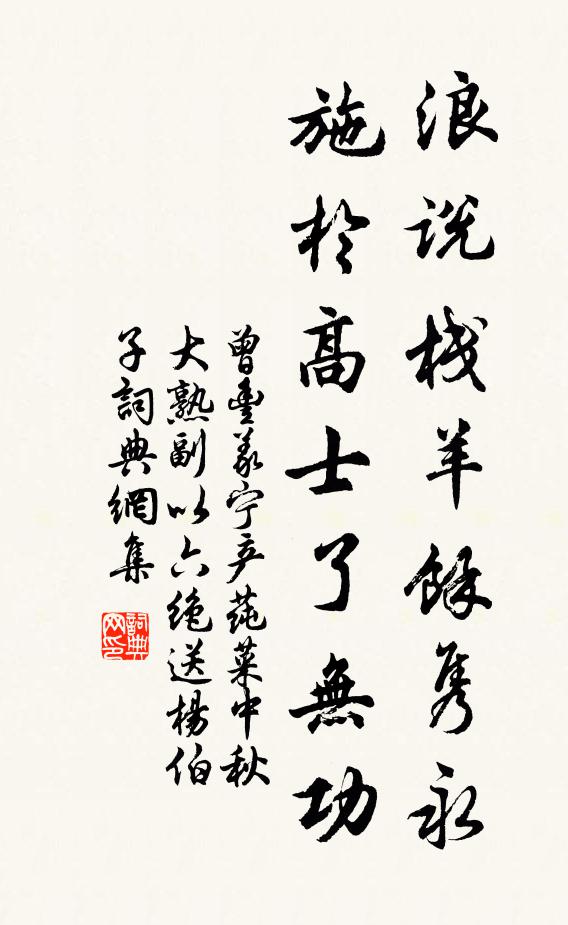 浪说栈羊馀隽永
施於高士了無功
曾豊義宁产莼菜中秋
大熟副以六绝送楊伯
子詞典網集
詞典网印